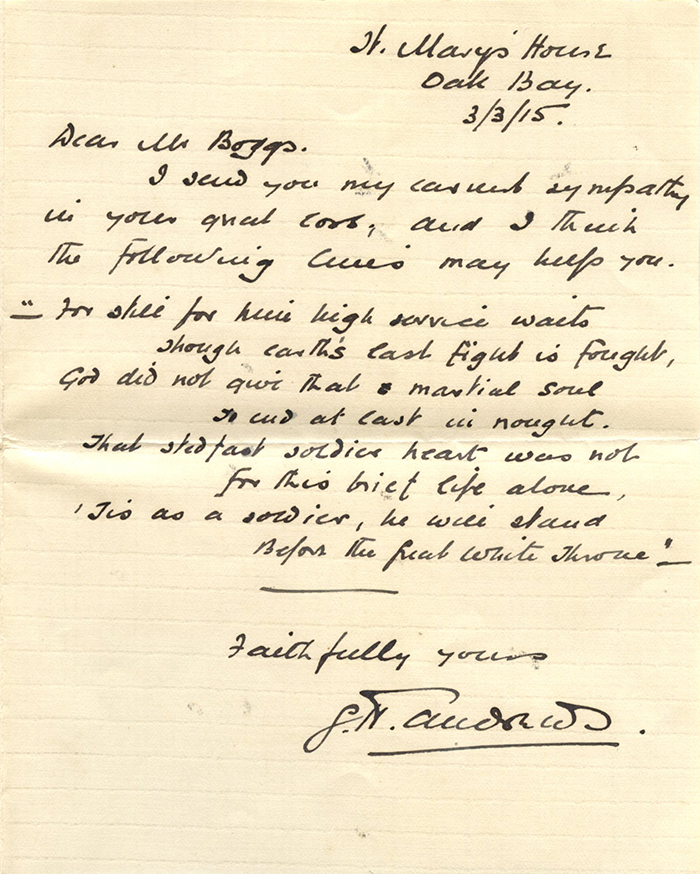 St. Mary's House
Oak Bay.
3/3/15.
Dear Mr Boggs.
I send you my earnest sympathy
in your great loss, and I think
the following lines may help you.
"For still for him high service waits
Though earth's last fight is fought,
God did not give that martial soul
To end at last in nought.
That stedfast soldier heart was not
For this brief life alone,
'Tis as a soldier, he will stand
Before the Great White Throne"
Faithfully yours
G.H. Andrews.